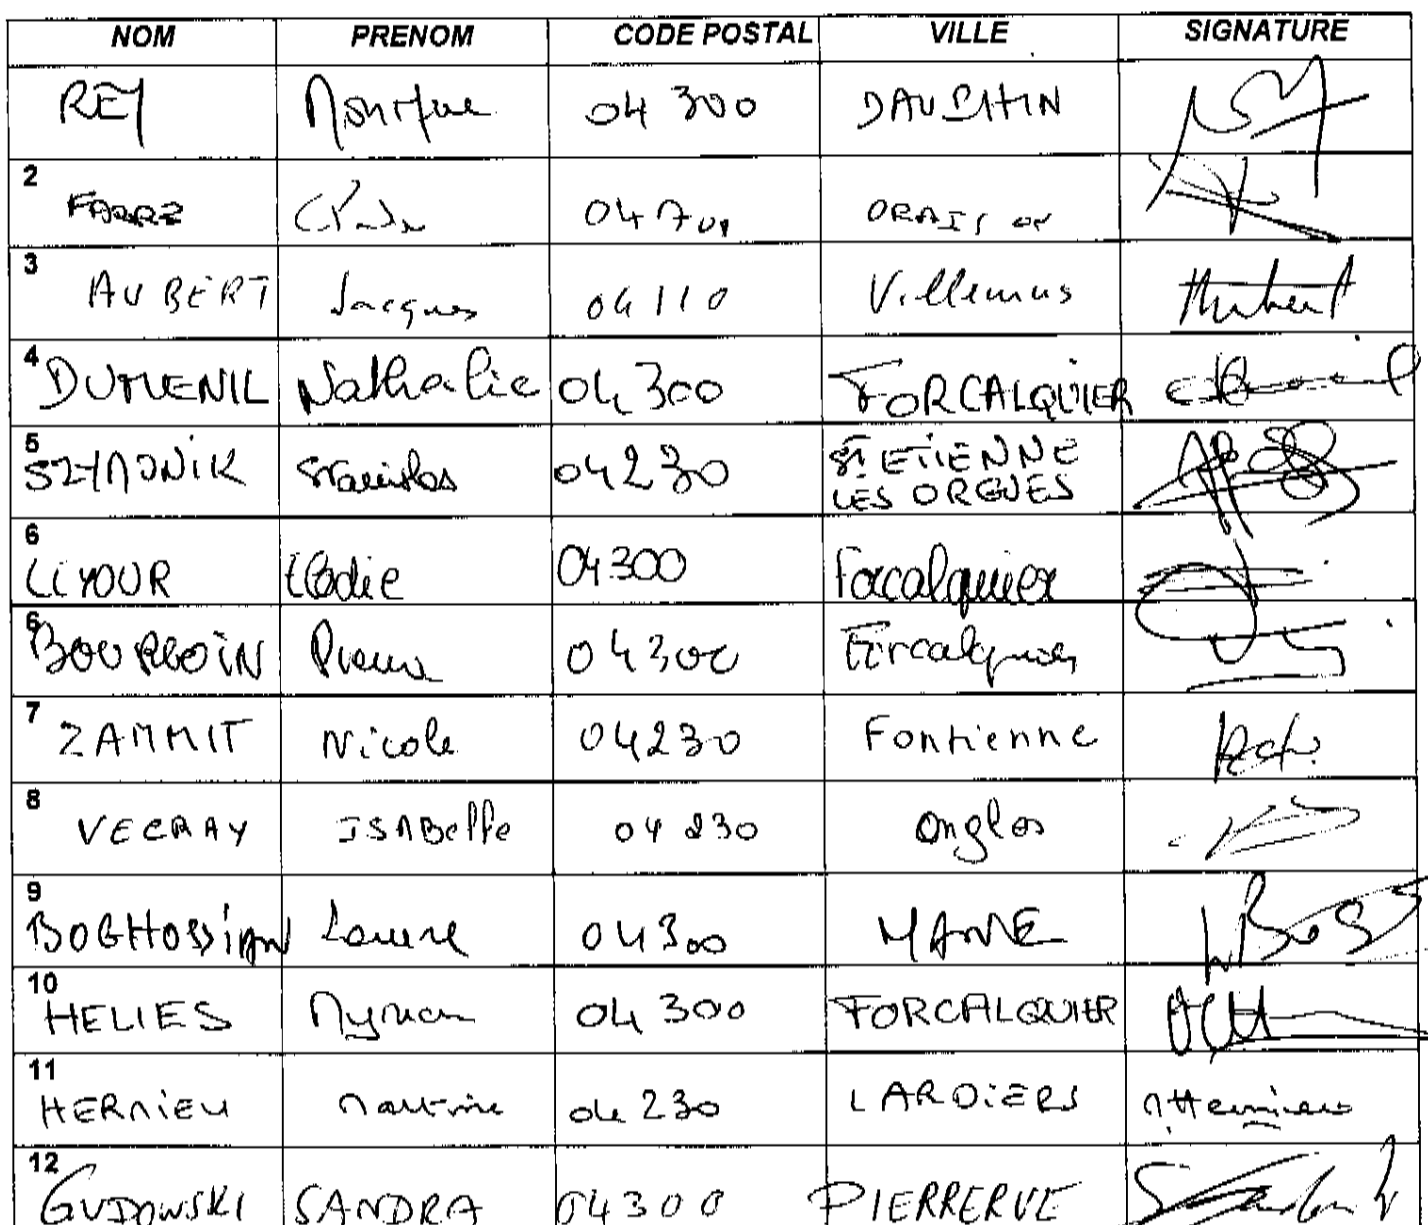 NOM PRENOM CODE POSTAL VILLE SIGNATURE
REY Monique 04 300 DAUPHIN
2 FABRE 04700 ORAISON
3 AUBERT Jacques 04110 Villemus Aubert
4 DUMENIL Nathalie 04 300 FORCALQUIER
5 SZYMONIK Stanislas 04230 ST ETIENNE
LES ORGUES
6 LIYOUR Elodie 04300 Forcalquier
6 BOURGOIN Pierre 04300 Forcalquier
7 ZAMMIT Nicole 04230 Fontienne
8 VECRAY ISABelle 04 230 Ongles
9 BOGHOSSIAN Laure 04300 MANE
10 HELIES Myriam 04 300 FORCALQUIER
11 HERMIEU Martine 04 230 LARDiERS
12 GUDOWSKI SANDRA 04300 PIERRERUE